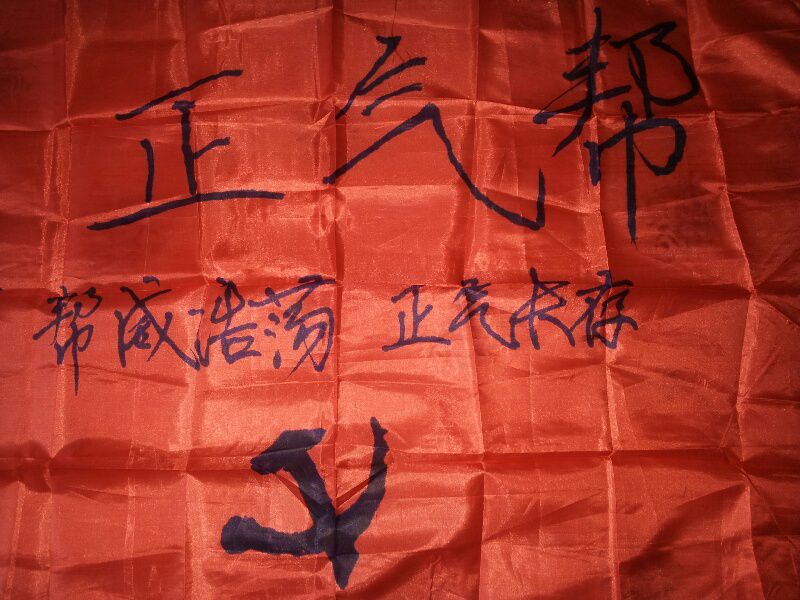 正气帮
帮威浩荡 正气长存